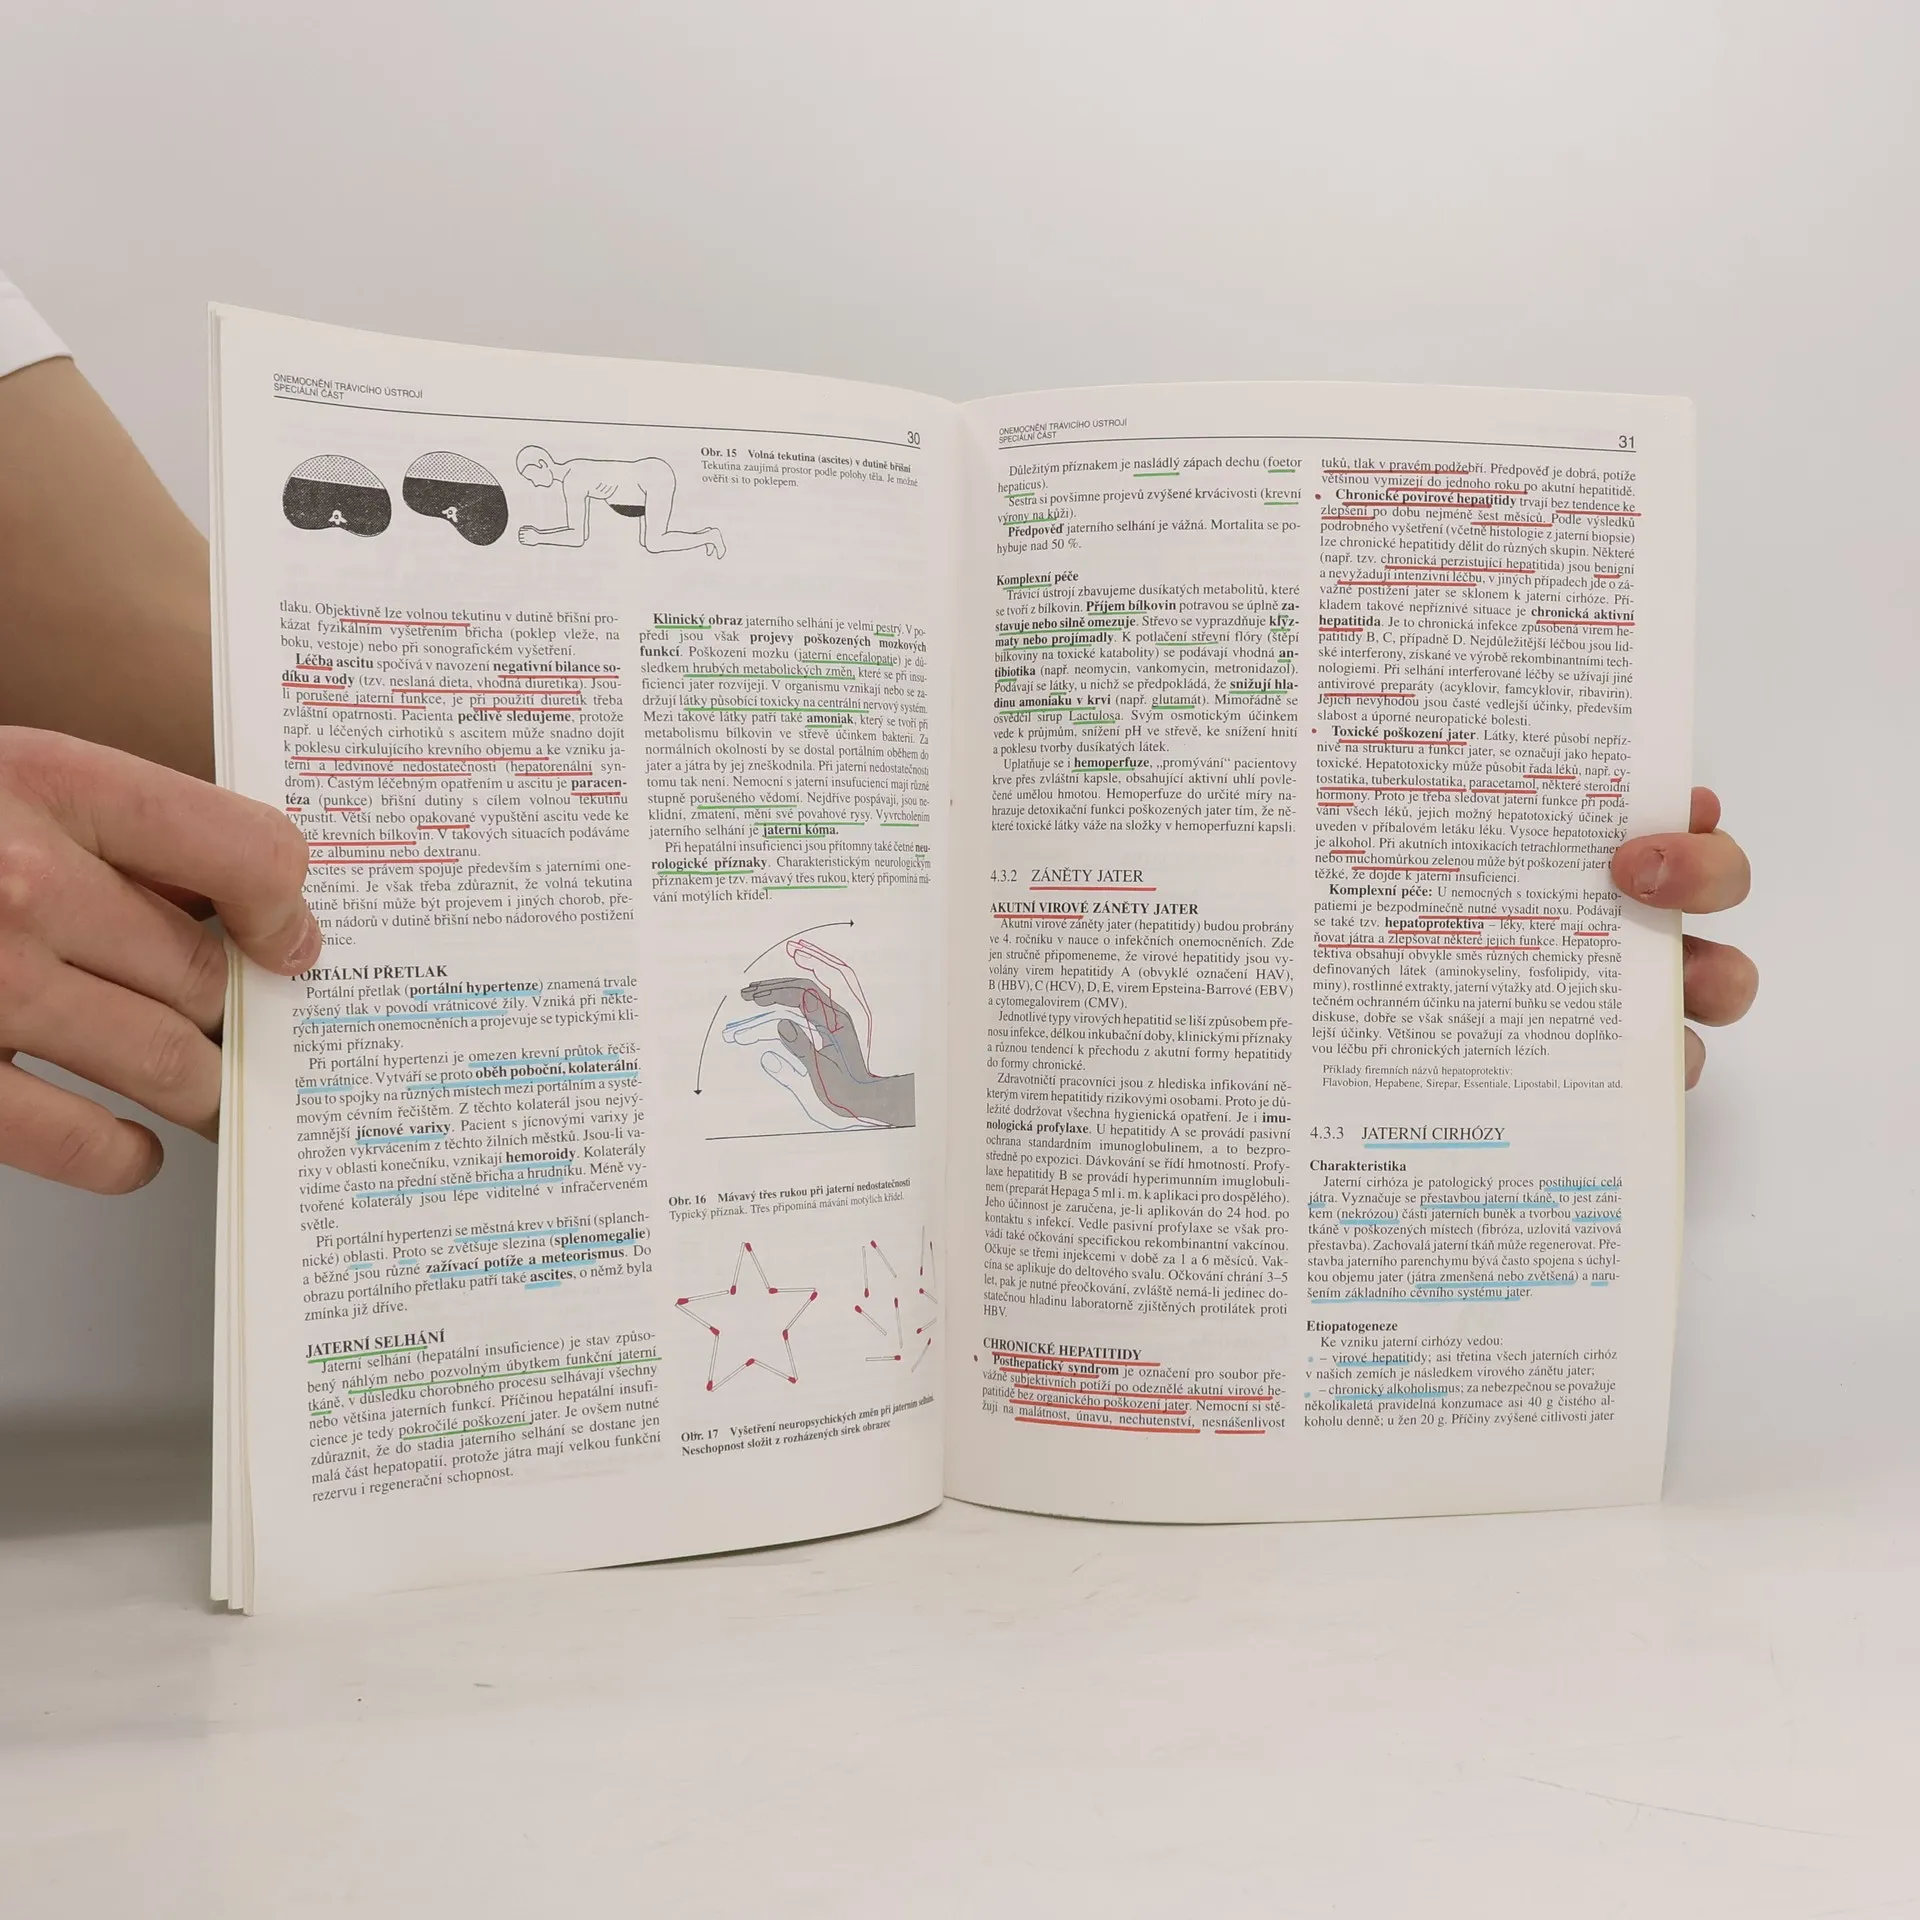 ONEMOCNĚNÍ TRÁVICÍHO ÚSTROJÍ
SPECIÁLNÍ ČÁST
30
Obr. 15 Volná tekutina (ascites) v dutině břišní
Tekutina zaujímá prostor podle polohy těla. Je možné
ověřit si to poklepem.
tlaku. Objektivně lze volnou tekutinu v dutině břišní pro-
kázat fyzikálním vyšetřením břicha (poklep vleže, na
boku, vestoje) nebo při sonografickém vyšetření.
Léčba ascitu spočívá v navození negativní bilance so-
díku a vody (tzv. neslaná dieta, vhodná diuretika). Jsou-
li porušené jaterní funkce, je při použití diuretik třeba
zvláštní opatrnosti. Pacienta pečlivě sledujeme, protože
např. u léčených cirhotiků s ascitem může snadno dojít
k poklesu cirkulujícího krevního objemu a ke vzniku ja-
terní a ledvinové nedostatečnosti (hepatorenální syn-
drom). Častým léčebným opatřením u ascitu je paracen-
téza (punkce) břišní dutiny s cílem volnou tekutinu
vypustit. Větší nebo opakované vypuštění ascitu vede ke
krevních bílkovin. V takových situacích podáváme
albuminu nebo dextranu.
Ascites se právem spojuje především s jaterními one-
mocněními. Je však třeba zdůraznit, že volná tekutina
dutině břišní může být projevem i jiných chorob, pře-
nádorů v dutině břišní nebo nádorového postižení
PORTÁLNÍ PŘETLAK
Portální přetlak (portální hypertenze) znamená trvale
zvýšený tlak v povodí vrátnicové žíly. Vzniká při někte-
rých jaterních onemocněních a projevuje se typickými kli-
nickými příznaky.
Při portální hypertenzi je omezen krevní průtok řečiš-
těm vrátnice. Vytváří se proto oběh poboční, kolaterální.
Jsou to spojky na různých místech mezi portálním a systé-
movým cévním řečištěm. Z těchto kolaterál jsou nejvý-
znamnější jícnové varixy. Pacient s jícnovými varixy je
ohrožen vykrvácením z těchto žilních městků. Jsou-li va-
rixy v oblasti konečníku, vznikají hemoroidy. Kolaterály
vidíme často na přední stěně břicha a hrudníku. Méně vy-
tvořené kolaterály jsou lépe viditelné v infračerveném
světle.
Při portální hypertenzi se městná krev v břišní (splanch-
nické) oblasti. Proto se zvětšuje slezina (splenomegalie)
a běžné jsou různé zažívací potíže a meteorismus. Do
obrazu portálního přetlaku patří také ascites, o němž byla
zmínka již dříve.
JATERNÍ SELHÁNÍ
Jaterní selhání (hepatální insuficience) je stav způso-
bený náhlým nebo pozvolným úbytkem funkční jaterní
tkáně, v důsledku chorobného procesu selhávají všechny
nebo většina jaterních funkcí. Příčinou hepatální insufi-
cience je tedy pokročilé poškození jater. Je ovšem nutné
zdůraznit, že do stadia jaterního selhání se dostane jen
malá část hepatopatií, protože játra mají velkou funkční
rezervu i regenerační schopnost.
Klinický obraz jaterního selhání je velmi pestrý. V po-
předí jsou však projevy poškozených mozkových
funkcí. Poškození mozku (jaterní encefalopatie) je dů-
sledkem hrubých metabolických změn, které se při insu-
ficienci jater rozvíjejí. V organismu vznikají nebo se za-
držují látky působící toxicky na centrální nervový systém.
Mezi takové látky patří také amoniak, který se tvoří při
metabolismu bílkovin ve střevě účinkem bakterií. Za
normálních okolností by se dostal portálním oběhem do
jater a játra by jej zneškodnila. Při jaterní nedostatečnosti
tomu tak není. Nemocní s jaterní insuficiencí mají různé
stupně porušeného vědomí. Nejdříve pospávají, jsou ne-
klidní, zmatení, mění své povahové rysy. Vyvrcholením
jaterního selhání je jaterní kóma.
Při hepatální insuficienci jsou přítomny také četné neu-
rologické příznaky. Charakteristickým neurologickým
příznakem je tzv. mávavý třes rukou, který připomíná má-
vání motýlích křídel.
Obr. 16 Mávavý třes rukou při jaterní nedostatečnosti
Typický příznak. Třes připomíná mávání motýlích křídel.
Obr. 17 Vyšetření neuropsychických změn při jaterním selhání.
Neschopnost složit z rozházených sirek obrazec
ONEMOCNĚNÍ TRÁVICÍHO ÚSTROJÍ
SPECIÁLNÍ ČÁST
31
Důležitým příznakem je nasládlý zápach dechu (foetor
hepaticus).
Sestra si povšimne projevů zvýšené krvácivosti (krevní
výrony na kůži).
Předpověď jaterního selhání je vážná. Mortalita se po-
hybuje nad 50 %.
Komplexní péče
Trávicí ústrojí zbavujeme dusíkatých metabolitů, které
se tvoří z bílkovin. Příjem bílkovin potravou se úplně za-
stavuje nebo silně omezuje. Střevo se vyprazdňuje klyz-
maty nebo projímadly. K potlačení střevní flóry (štěpí
bílkoviny na toxické katabolity) se podávají vhodná an-
tibiotika (např. neomycin, vankomycin, metronidazol).
Podávají se látky, u nichž se předpokládá, že snižují hla-
dinu amoniaku v krvi (např. glutamát). Mimořádně se
osvědčil sirup Lactulosa. Svým osmotickým účinkem
vede k průjmům, snížení pH ve střevě, ke snížení hnití
a poklesu tvorby dusíkatých látek.
Uplatňuje se i hemoperfuze, „promývání“ pacientovy
krve přes zvláštní kapsle, obsahující aktivní uhlí povle-
čené umělou hmotou. Hemoperfuze do určité míry na-
hrazuje detoxikační funkci poškozených jater tím, že ně-
které toxické látky váže na složky v hemoperfuzní kapsli.
4.3.2 ZÁNĚTY JATER
AKUTNÍ VIROVÉ ZÁNĚTY JATER
Akutní virové záněty jater (hepatitidy) budou probrány
ve 4. ročníku v nauce o infekčních onemocněních. Zde
jen stručně připomeneme, že virové hepatitidy jsou vy-
volány virem hepatitidy A (obvyklé označení HAV),
B (HBV), C (HCV), D, E, virem Epsteina-Barrové (EBV)
a cytomegalovirem (CMV).
Jednotlivé typy virových hepatitid se liší způsobem pře-
nosu infekce, délkou inkubační doby, klinickými příznaky
a různou tendencí k přechodu z akutní formy hepatitidy
do formy chronické.
Zdravotničtí pracovníci jsou z hlediska infikování ně-
kterým virem hepatitidy rizikovými osobami. Proto je dů-
ležité dodržovat všechna hygienická opatření. Je i imu-
nologická profylaxe. U hepatitidy A se provádí pasivní
ochrana standardním imunoglobulinem, a to bezpro-
středně po expozici. Dávkování se řídí hmotností. Profy-
laxe hepatitidy B se provádí hyperimunním imuglobuli-
nem (preparát Hepaga 5 ml i. m. k aplikaci pro dospělého).
Jeho účinnost je zaručena, je-li aplikován do 24 hod. po
kontaktu s infekcí. Vedle pasivní profylaxe se však pro-
vádí také očkování specifickou rekombinantní vakcínou.
Očkuje se třemi injekcemi v době za 1 a 6 měsíců. Vak-
cína se aplikuje do deltového svalu. Očkování chrání 3–5
let, pak je nutné přeočkování, zvláště nemá-li jedinec do-
statečnou hladinu laboratorně zjištěných protilátek proti
HBV.
CHRONICKÉ HEPATITIDY
Posthepatický syndrom je označení pro soubor pře-
vážně subjektivních potíží po odeznělé akutní virové he-
patitidě bez organického poškození jater. Nemocní si stě-
žují na malátnost, únavu, nechutenství, nesnášenlivost
tuků, tlak v pravém podžebří. Předpověď je dobrá, potíže
většinou vymizejí do jednoho roku po akutní hepatitidě.
Chronické povirové hepatitidy trvají bez tendence ke
zlepšení po dobu nejméně šest měsíců. Podle výsledků
podrobného vyšetření (včetně histologie z jaterní biopsie)
lze chronické hepatitidy dělit do různých skupin. Některé
(např. tzv. chronická perzistující hepatitida) jsou benigní
a nevyžadují intenzivní léčbu, v jiných případech jde o zá-
važné postižení jater se sklonem k jaterní cirhóze. Pří-
kladem takové nepříznivé situace je chronická aktivní
hepatitida. Je to chronická infekce způsobená virem he-
patitidy B, C, případně D. Nejdůležitější léčbou jsou lid-
ské interferony, získané ve výrobě rekombinantními tech-
nologiemi. Při selhání interferované léčby se užívají jiné
antivirové preparáty (acyklovir, famcyklovir, ribavirin).
Jejich nevýhodou jsou časté vedlejší účinky, především
slabost a úporné neuropatické bolesti.
Toxické poškození jater. Látky, které působí nepříz-
nivě na strukturu a funkci jater, se označují jako hepato-
toxické. Hepatotoxicky může působit řada léků, např. cy-
tostatika, tuberkulostatika, paracetamol, některé steroidní
hormony. Proto je třeba sledovat jaterní funkce při podá-
vání všech léků, jejich možný hepatotoxický účinek je
uveden v příbalovém letáku léku. Vysoce hepatotoxický
je alkohol. Při akutních intoxikacích tetrachlormethanem
nebo muchomůrkou zelenou může být poškození jater
těžké, že dojde k jaterní insuficienci.
Komplexní péče: U nemocných s toxickými hepato-
patiemi je bezpodmínečně nutné vysadit noxu. Podávají
se také tzv. hepatoprotektiva – léky, které mají ochra-
ňovat játra a zlepšovat některé jejich funkce. Hepatopro-
tektiva obsahují obvykle směs různých chemicky přesně
definovaných látek (aminokyseliny, fosfolipidy, vita-
miny), rostlinné extrakty, jaterní výtažky atd. O jejich sku-
tečném ochranném účinku na jaterní buňku se vedou stále
diskuse, dobře se však snášejí a mají jen nepatrné ved-
lejší účinky. Většinou se považují za vhodnou doplňko-
vou léčbu při chronických jaterních lézích.
Příklady firemních názvů hepatoprotektiv:
Flavobion, Hepabene, Sirepar, Essentiale, Lipostabil, Lipovitan atd.
4.3.3 JATERNÍ CIRHÓZY
Charakteristika
Jaterní cirhóza je patologický proces postihující celá
játra. Vyznačuje se přestavbou jaterní tkáně, to jest záni-
kem (nekrózou) části jaterních buněk a tvorbou vazivové
tkáně v poškozených místech (fibróza, uzlovitá vazivová
přestavba). Zachovalá jaterní tkáň může regenerovat. Pře-
stavba jaterního parenchymu bývá často spojena s úchyl-
kou objemu jater (játra zmenšená nebo zvětšená) a naru-
šením základního cévního systému jater.
Etiopatogeneze
Ke vzniku jaterní cirhózy vedou:
– virové hepatitidy; asi třetina všech jaterních cirhóz
v našich zemích je následkem virového zánětu jater;
– chronický alkoholismus; za nebezpečnou se považuje
několikaletá pravidelná konzumace asi 40 g čistého al-
koholu denně; u žen 20 g. Příčiny zvýšené citlivosti jater